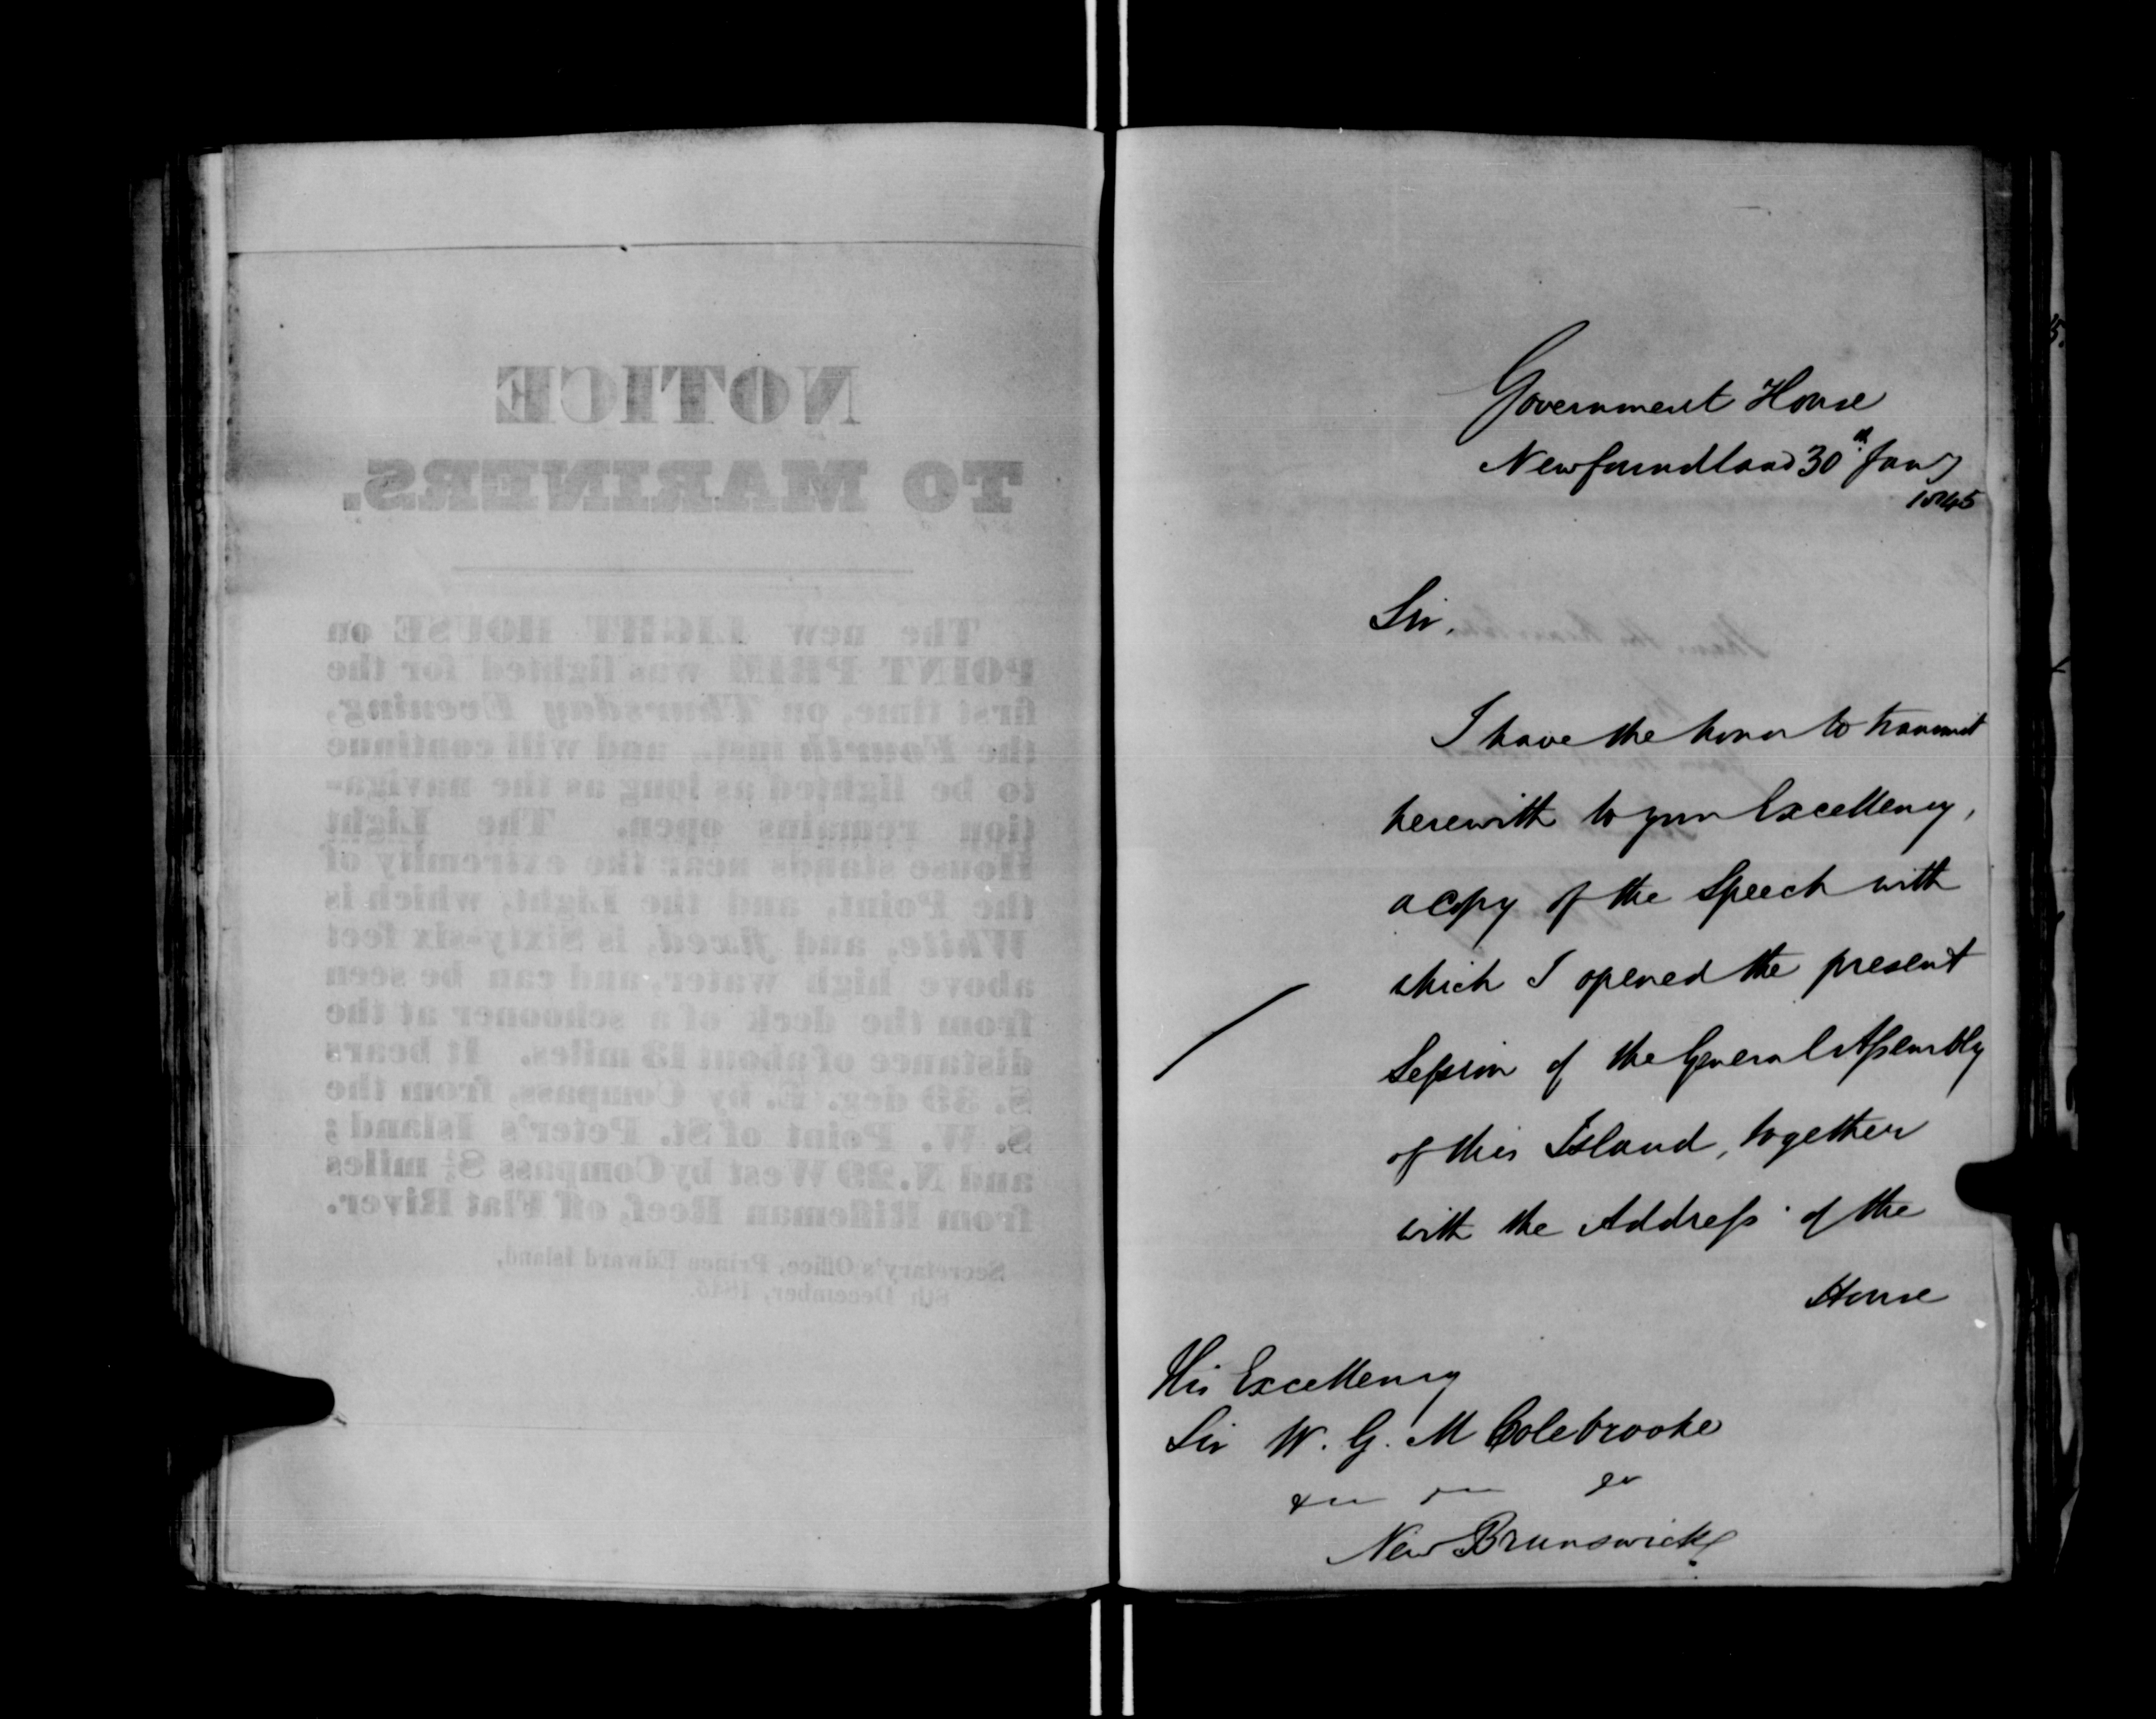 NOTICE
TO MARINERS.
The new LIGHT HOUSE on
POINT PRIM was lighted for the
first time, on Thursday Evening,
the Fourth inst., and will continue
to be lighted as long as the naviga-
tion remains open. The Light
House stands near the extremity of
the Point, and the Light, which is
White, and fixed, is Sixty-six feet
above high water, and can be seen
from the deck of a schooner at the
distance of about 13 miles. It bears
S. 39 deg. E. by Compass, from the
S. W. Point of St. Peter's Island;
and N. 29 West by Compass 8½ miles
from Rifleman Reef, off Flat River.
Secretary's Office, Prince Edward Island,
8th December, 1845.
Government House
Newfoundland 30th Jany
1845
Sir,
I have the honor to transmit
herewith to your Excellency,
a copy of the Speech with
which I opened the present
Session of the General Assembly
of this Island, together
with the Address of the
House
His Excellency
Sir W. G. M Colebrooke
New Brunswick